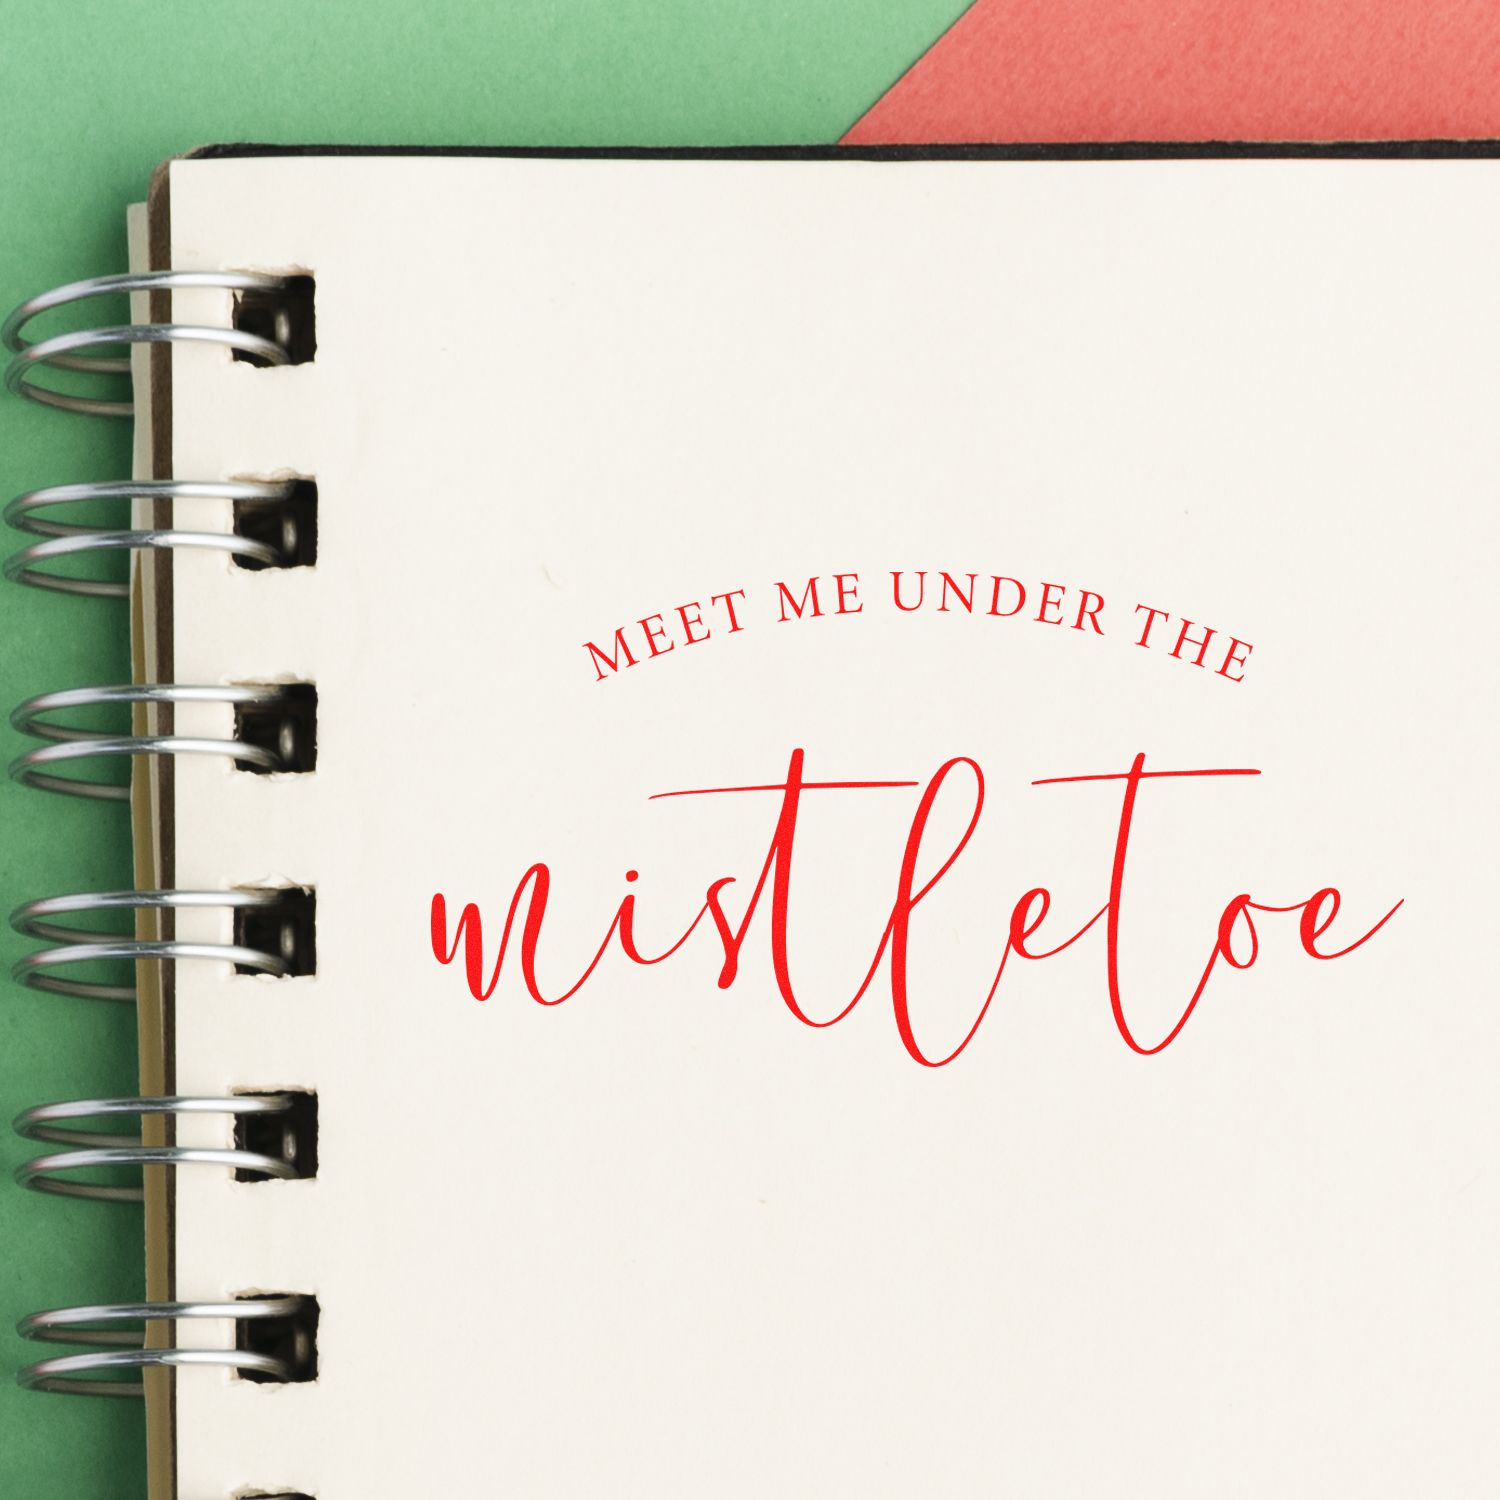 MEET ME UNDER THE
mistletoe